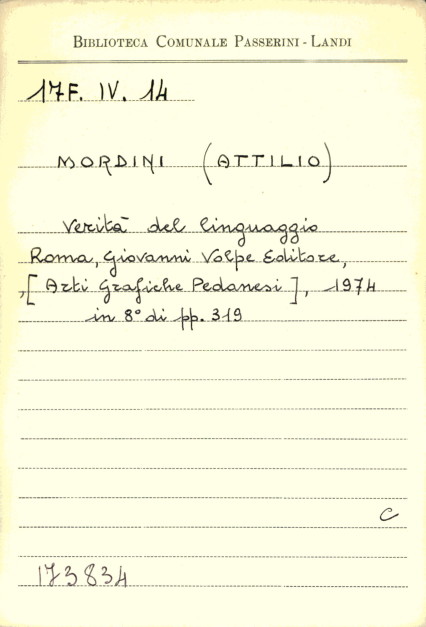 BIBLIOTECA COMUNALE PASSERINI - LANDI
17F. IV. 14
MORDINI (ATTILIO)
Verità del linguaggio
Roma, Giovanni Volpe Editore,
,[Arti Grafiche Pedanesi], 1974
in 8° di pp. 319
C
173834